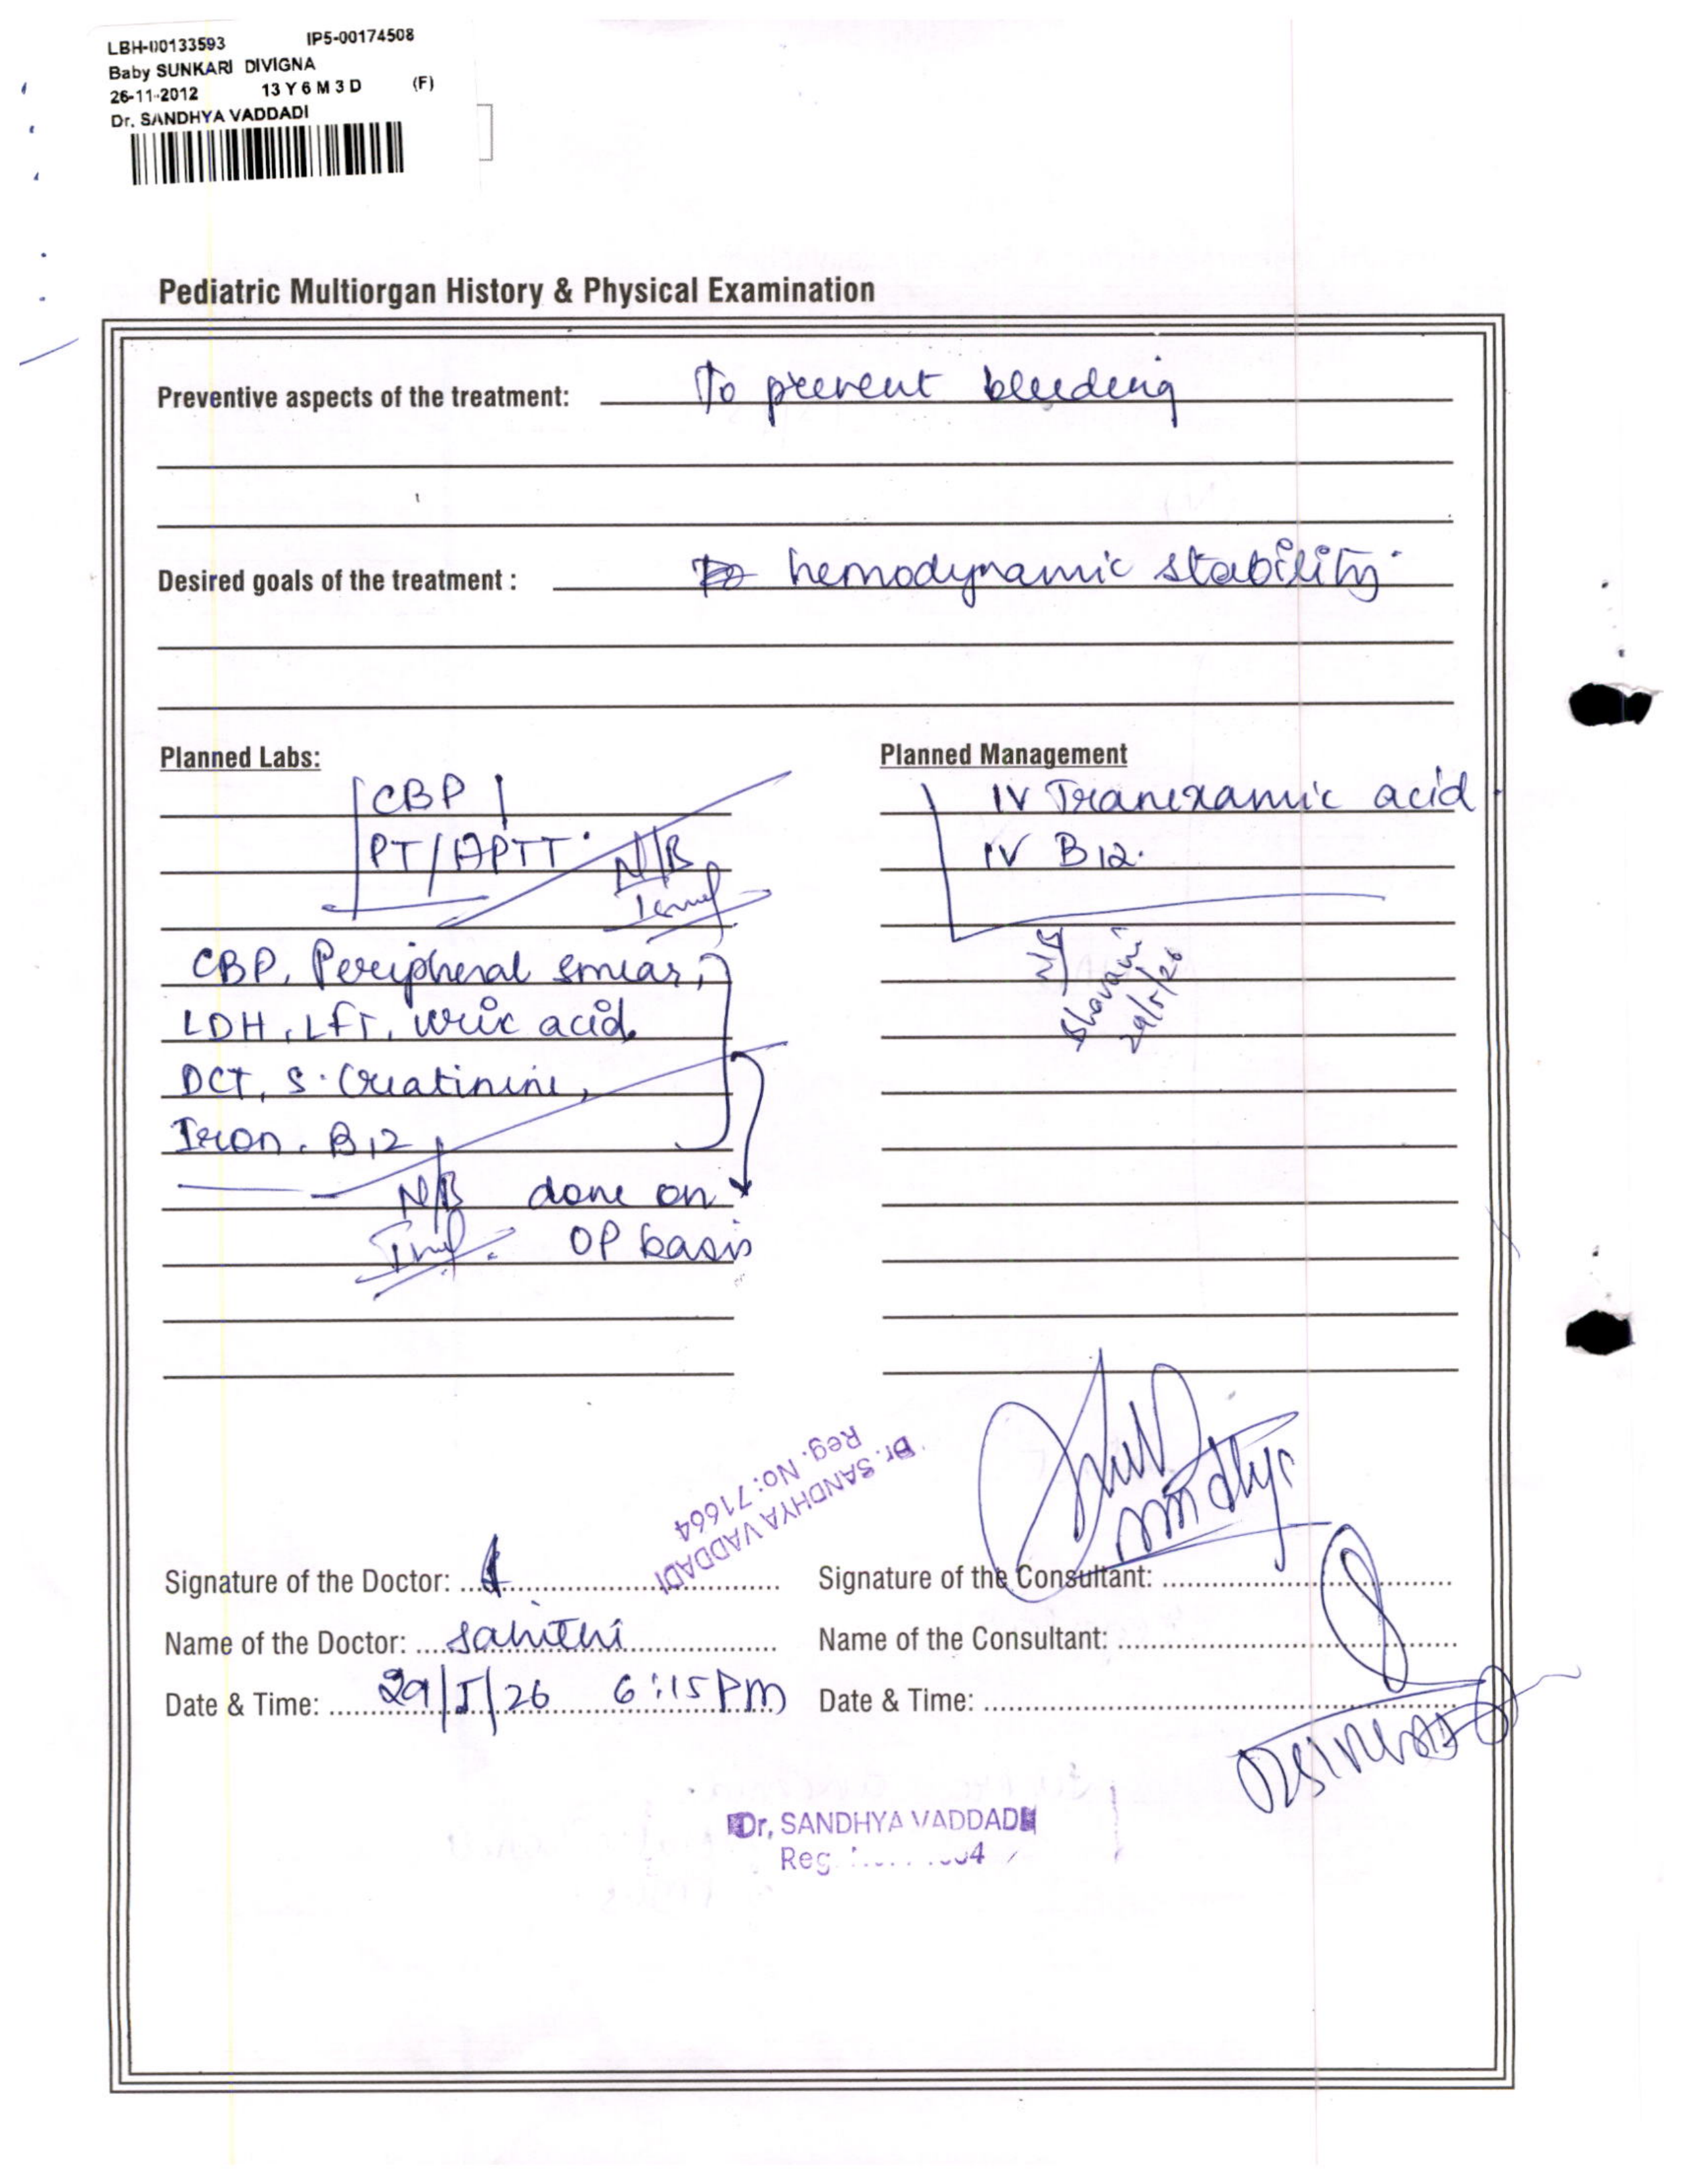 LBH-00133593 IP5-00174508
Baby SUNKARI DIVIGNA
26-11-2012 13 Y 6 M 3 D (F)
Dr. SANDHYA VADDADI
Pediatric Multiorgan History & Physical Examination
Preventive aspects of the treatment: To prevent bleeding
Desired goals of the treatment : hemodynamic stability.
Planned Labs:
CBP
PT/APTT.
N/B
CBP, Peripheral smear,
LDH, LFT, uric acid
DCT, S. Creatinine,
Iron. B12
N/B done on
OP basis
Planned Management
IV Tranexamic acid
IV B12.
N/B
Bhavani
29/5/26
Dr. SANDHYA VADDADI
Reg. No: 71664
Sandhya
Signature of the Doctor:
Signature of the Consultant:
Name of the Doctor: Sahithi
Name of the Consultant:
Date & Time: 29/5/26 6:15 Pm
Date & Time:
Dr, SANDHYA VADDADI
Reg